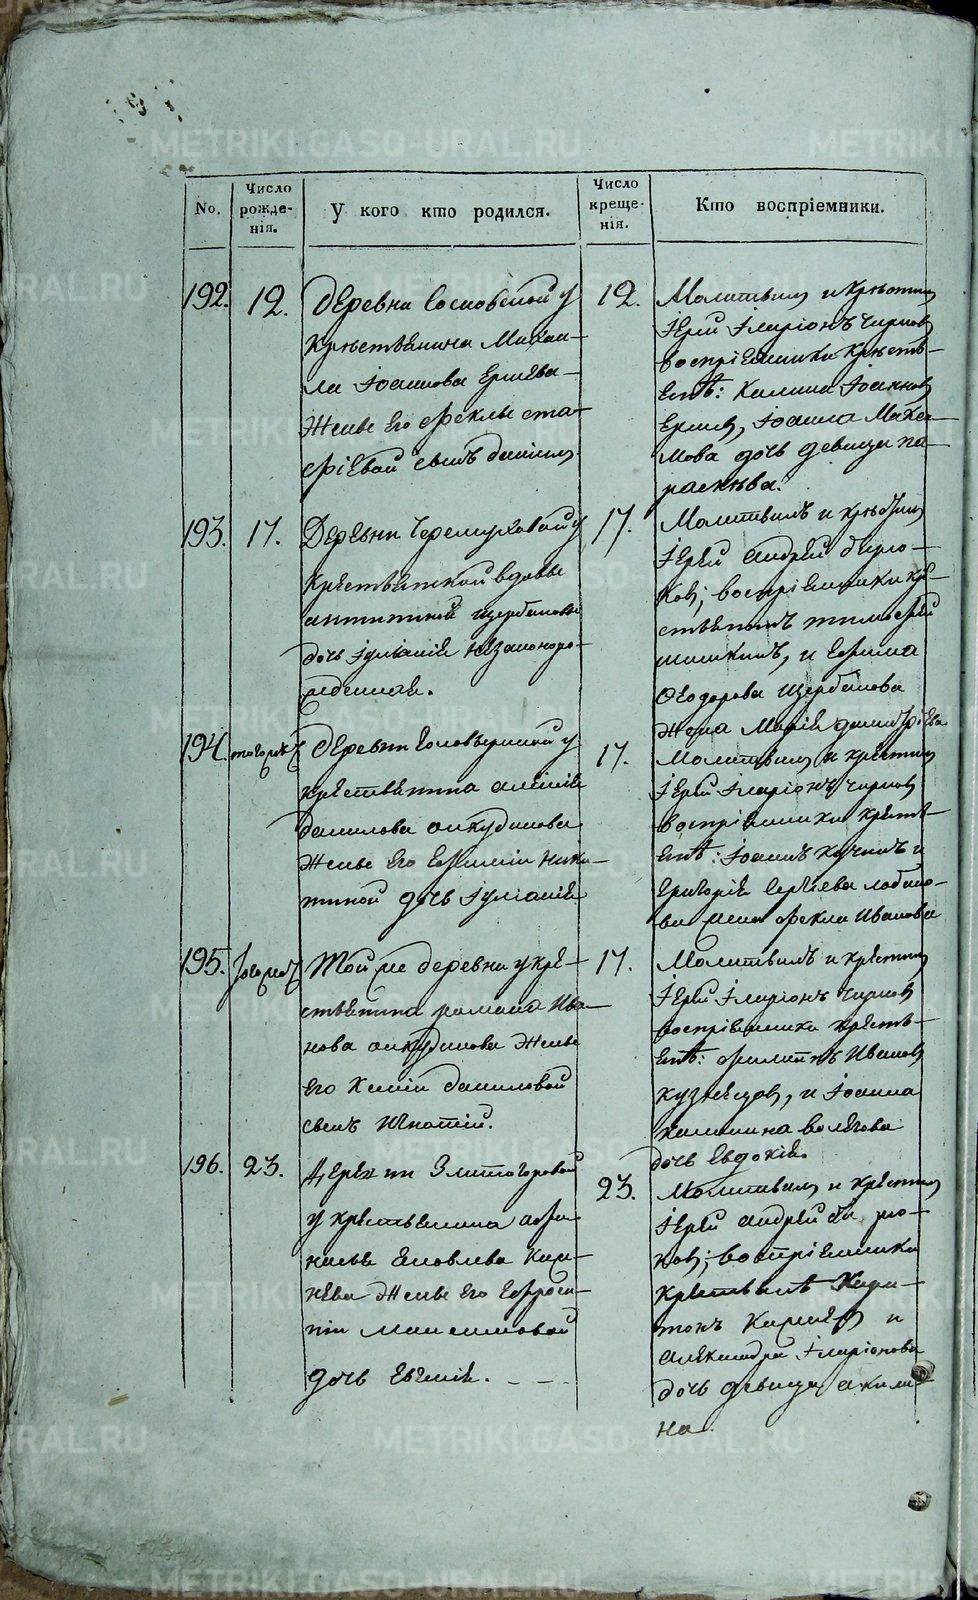 No.
Число рожде-нія.
У кого кто родился.
Число креще-нія.
Кто воспріемники.
192.
12.
деревни Сосновской у
крестьянина Михаи-
ла Іоаннова Ершева
жены его Феклы
сынъ Даніилъ
12.
Молитвилъ и крестилъ
Іерей Іларіонъ Чирковъ
воспріемники кресть-
янѣ: Калина Іоанновъ
Ершевъ, Іоанна Макси-
мова дочь девица Па-
раскѣва.
193.
17.
Деревни Черемуховой у
крестьянской вдовы
Щербаковы
дочь Іуліанія незаконоро-
жденная.
17.
Молитвилъ и крестилъ
Іерей Андрей Бирю-
ковъ; воспріемники кре-
стьянинъ Тимофей
Шишкинъ, и Ефима
Феодорова Щербакова
жена Марія Димитріева
194.
того жъ
деревни Коловершной у
крестьянина
Данилова Анкудинова
жены его Евфиміи Ники-
тиной дочь Іуліанія
17.
Молитвилъ и крестилъ
Іерей Іларіонъ Чирковъ
воспріемники кресть-
янѣ: Іоаннъ Кучинъ и
Григорія Сергіева Лобано-
ва жена Фекла Иванова
195.
того жъ
Той же деревни у кре-
стьянина Романа Ива-
нова Анкудинова жены
его Ксеніи Даниловой
сынъ Игнатій.
17.
Молитвилъ и крестилъ
Іерей Іларіонъ Чирковъ
воспріемники кресть-
янѣ: Филиппъ Ивановъ
Кузнецовъ, и Іоанна
Калинина Волегова
дочь Евдокія.
196.
23.
Деревни Златогоровой
у крестьянина Афа-
насья Яковлева Кар-
нева жены его Евфроси-
ніи Максимовой
дочь Евгенія.
23.
Молитвилъ и крестилъ
Іерей Андрей Бирю-
ковъ; воспріемники
крестьянѣ Хари-
тонъ Карневъ и
Александра Іларіонова
дочь девица Акили-
на.
METRIKI.GASO-URAL.RU